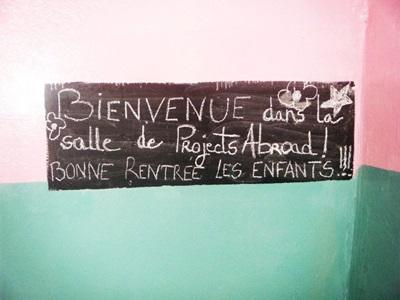 BIENVENUE dans la
salle de Projects Abroad !
BONNE RENTRÉE LES ENFANTS !!!